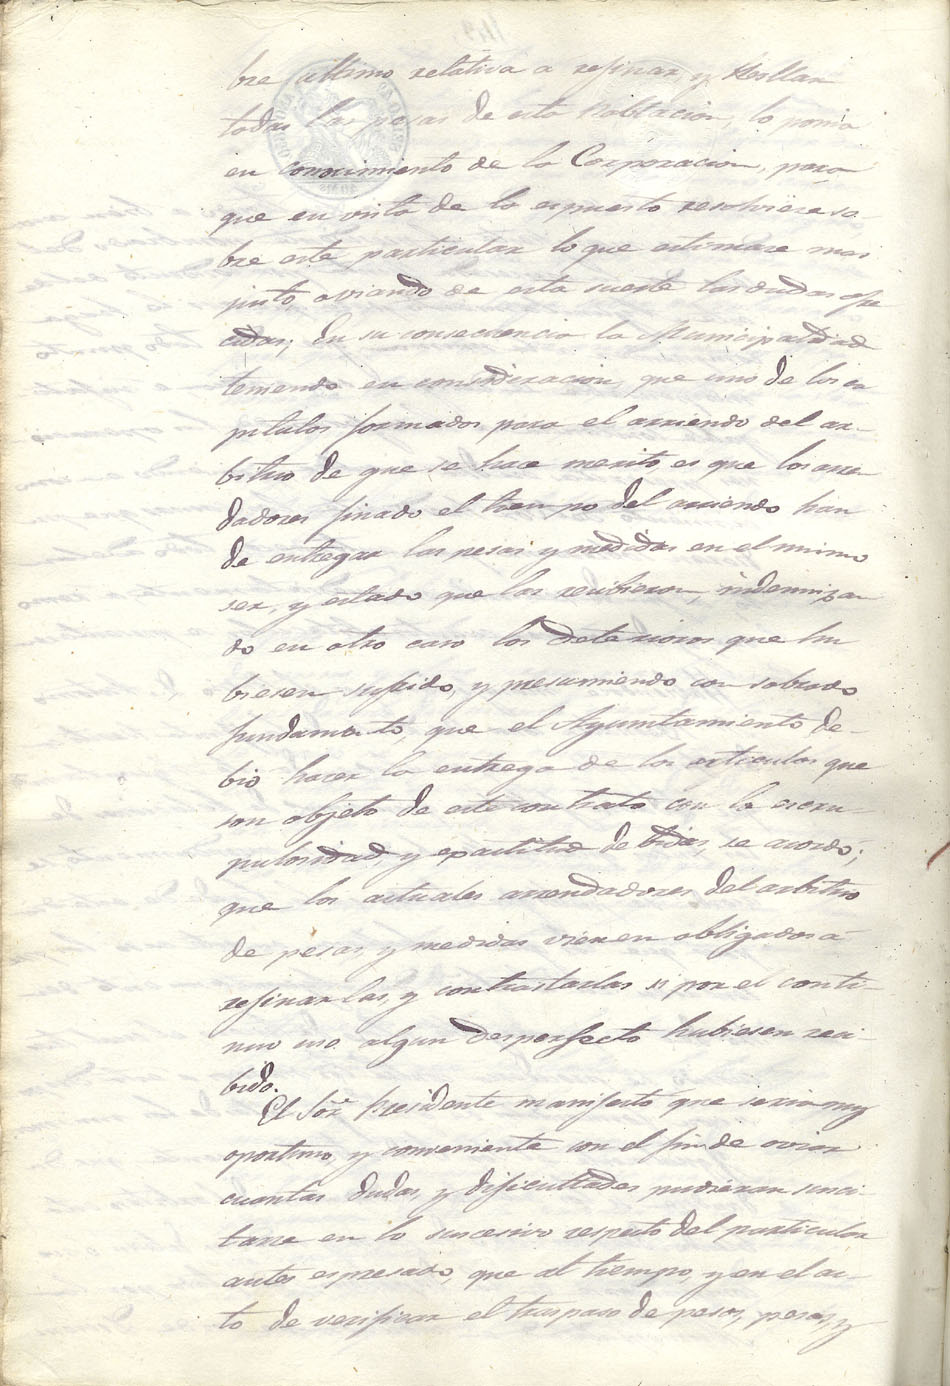 bre ultimo relativa a refinar y sellar
todas las pesas de esta Poblacion, lo ponia
en conocimiento de la Corporacion, para
que en vista de lo espuesto resolviere so-
bre este particular lo que estimare mas
justo, oviando de esta suerte las dudas ofre
cidas; En su consecuencia la Municipalidad
teniendo en consideracion, que uno de los ca
pitulos formados para el arriendo del ar-
bitrio de que se hace merito, es que los arren
dadores finado el tiempo del arriendo han
de entregar las pesas y medidas en el mismo
ser, y estado que las recibieron, indemnizan
do en otro caso los deterioros que hu
biesen sufrido, y presumiendo con sobrado
fundamento, que el Ayuntamiento de-
bió hacer la entrega de los articulos que
son objeto de este contrato con la escru-
pulosidad, y exactitud debidas, se acordó;
que los actuales arrendadores del arbitrio
de pesas, y medidas vienen obligados á
refinarlas, y contrastarlas si por el conti-
nuo uso algun desperfecto hubiesen reci-
bido.
El Sor. Presidente manifesto que seria muy
oportuno, y conveniente con el fin de oviar
cuantas dudas, y dificultades pudieran susci-
tarse en lo sucesivo respecto del particular
antes espresado, que al tiempo, y en el ac-
to de verificar el traspaso de pesos, pesas, y